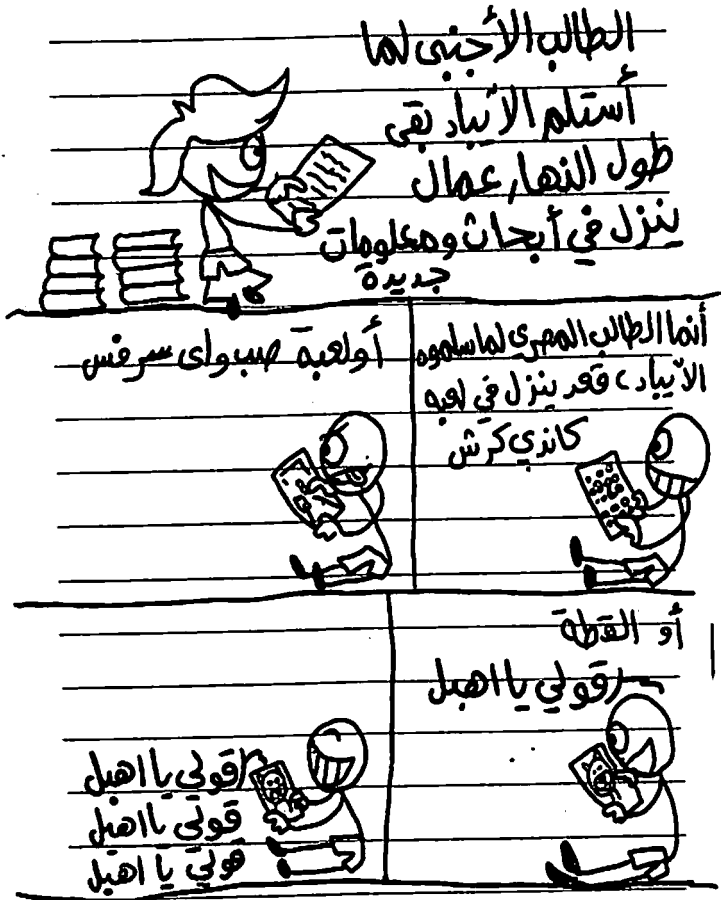 الطالب الأجنبى لما
أستلم الآيباد بقى
طول النهار عمال
ينزل في أبحاث ومعلومات
جديدة
أنما الطالب المصري لما سلموه
الآيباد، قعد ينزل في لعبه
كاندي كرش
أو لعبة صب واى سرفس
أو القطة
قولي يا اهبل
قولي يا اهبل
قولي يا اهبل
قولي يا اهبل